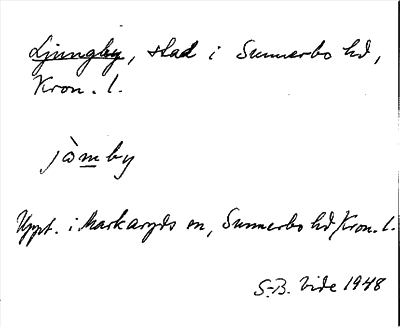 Ljungby, stad i Sunnerbo hd,
Kron. l.
jòmby
Uppt. i Markaryds sn, Sunnerbo hd, Kron. l.
S.-B. Vide 1948